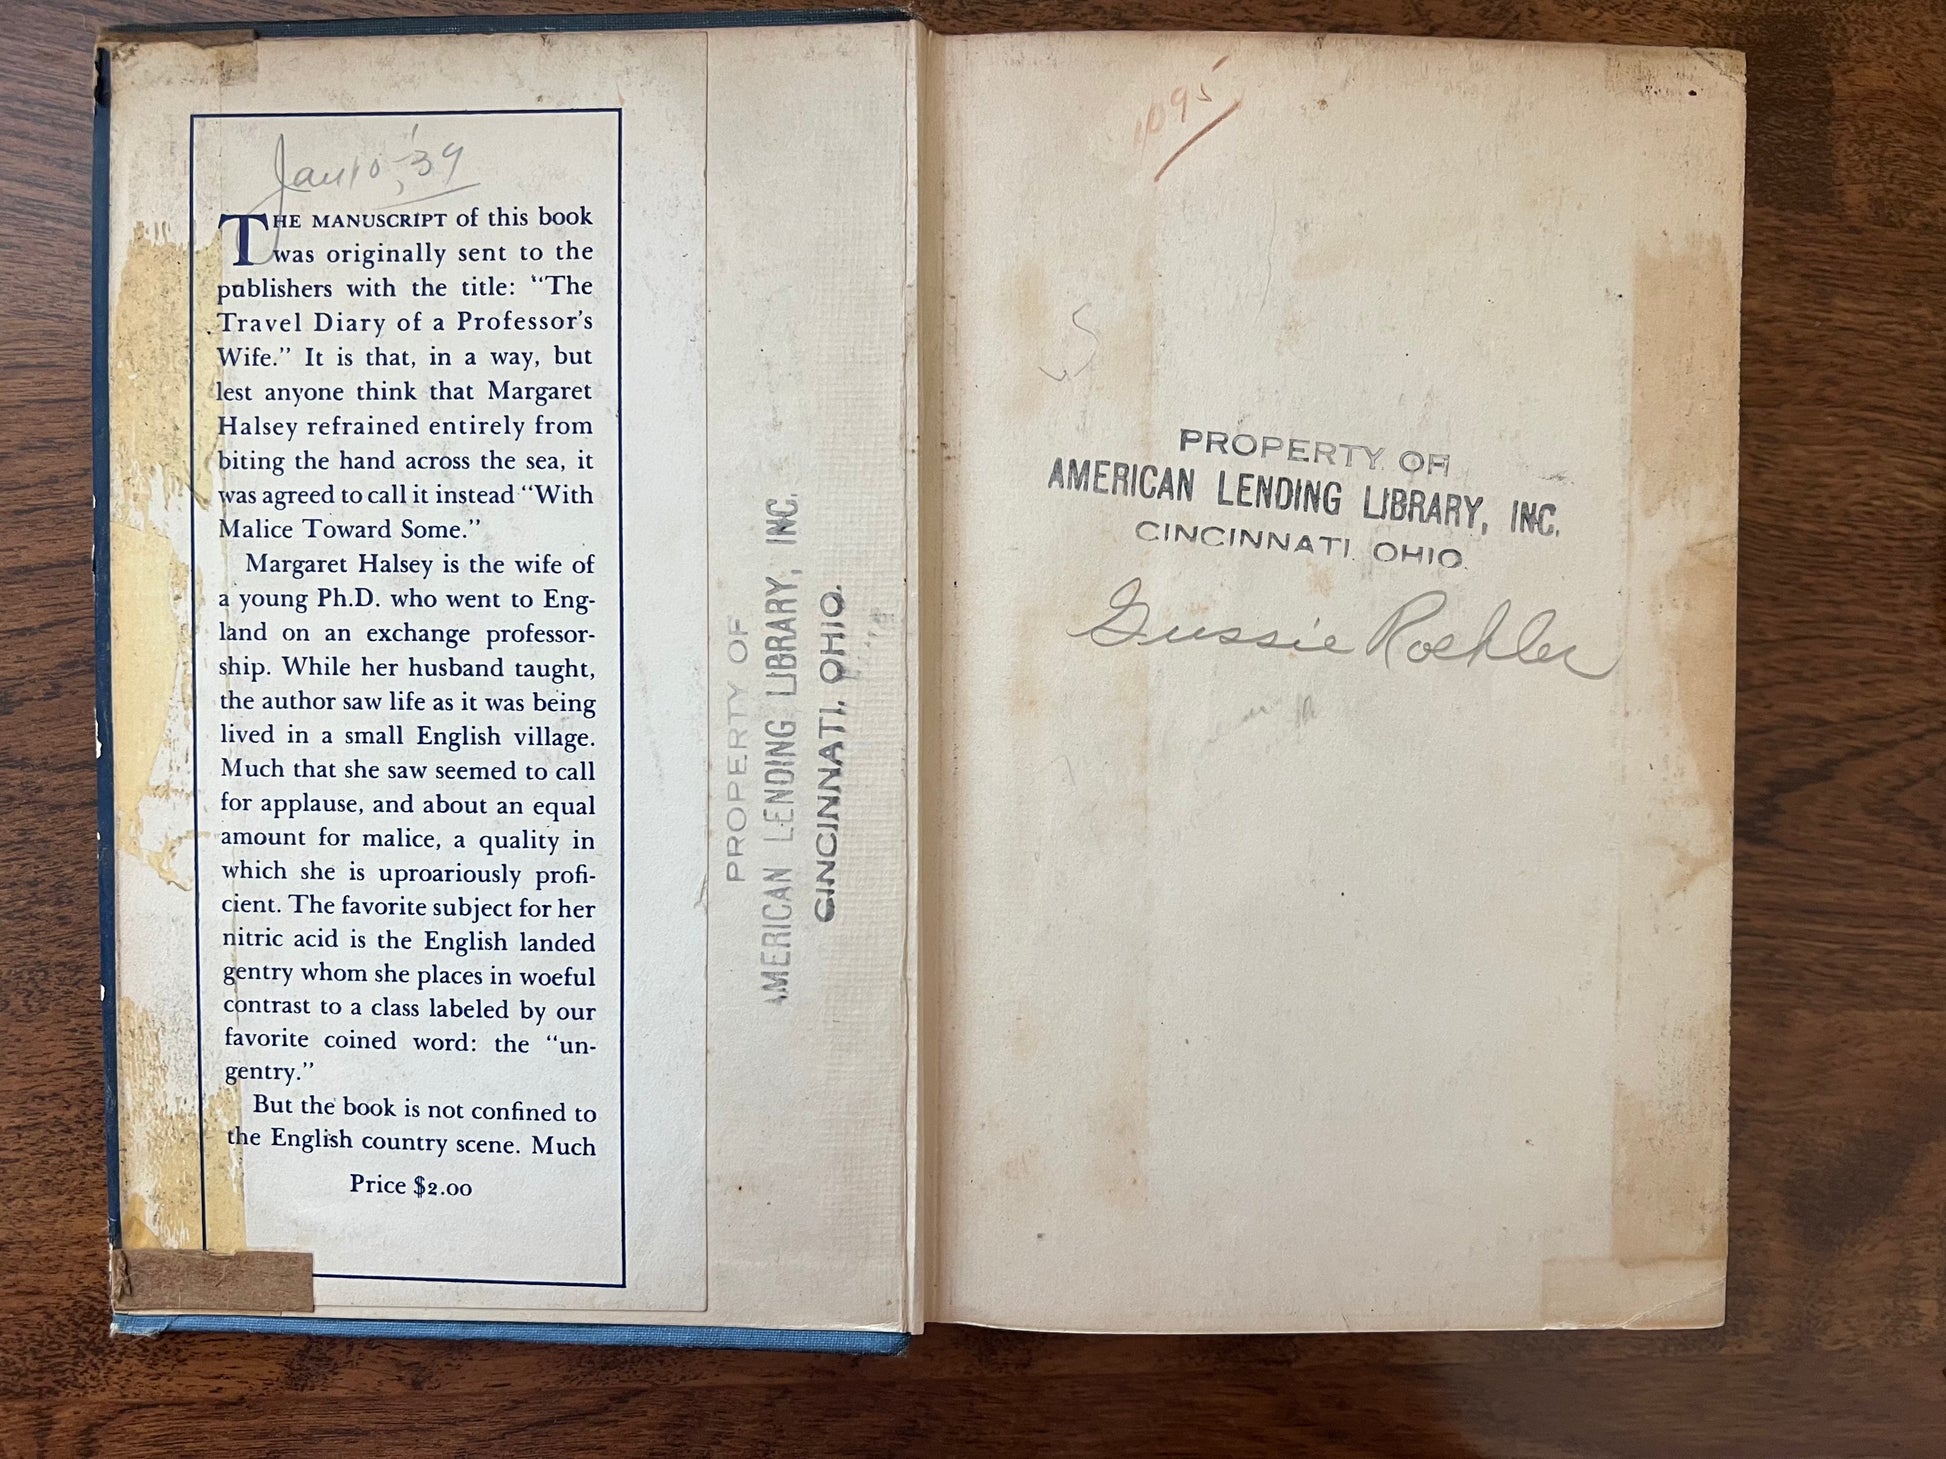 Jan 10, '39
THE MANUSCRIPT of this book
was originally sent to the
publishers with the title: “The
Travel Diary of a Professor’s
Wife.” It is that, in a way, but
lest anyone think that Margaret
Halsey refrained entirely from
biting the hand across the sea, it
was agreed to call it instead “With
Malice Toward Some.”
Margaret Halsey is the wife of
a young Ph.D. who went to Eng-
land on an exchange professor-
ship. While her husband taught,
the author saw life as it was being
lived in a small English village.
Much that she saw seemed to call
for applause, and about an equal
amount for malice, a quality in
which she is uproariously profi-
cient. The favorite subject for her
nitric acid is the English landed
gentry whom she places in woeful
contrast to a class labeled by our
favorite coined word: the “un-
gentry.”
But the book is not confined to
the English country scene. Much
Price $2.00
PROPERTY OF
AMERICAN LENDING LIBRARY, INC.
CINCINNATI, OHIO.
1095
PROPERTY OF
AMERICAN LENDING LIBRARY, INC.
CINCINNATI, OHIO.
Gussie Roehler